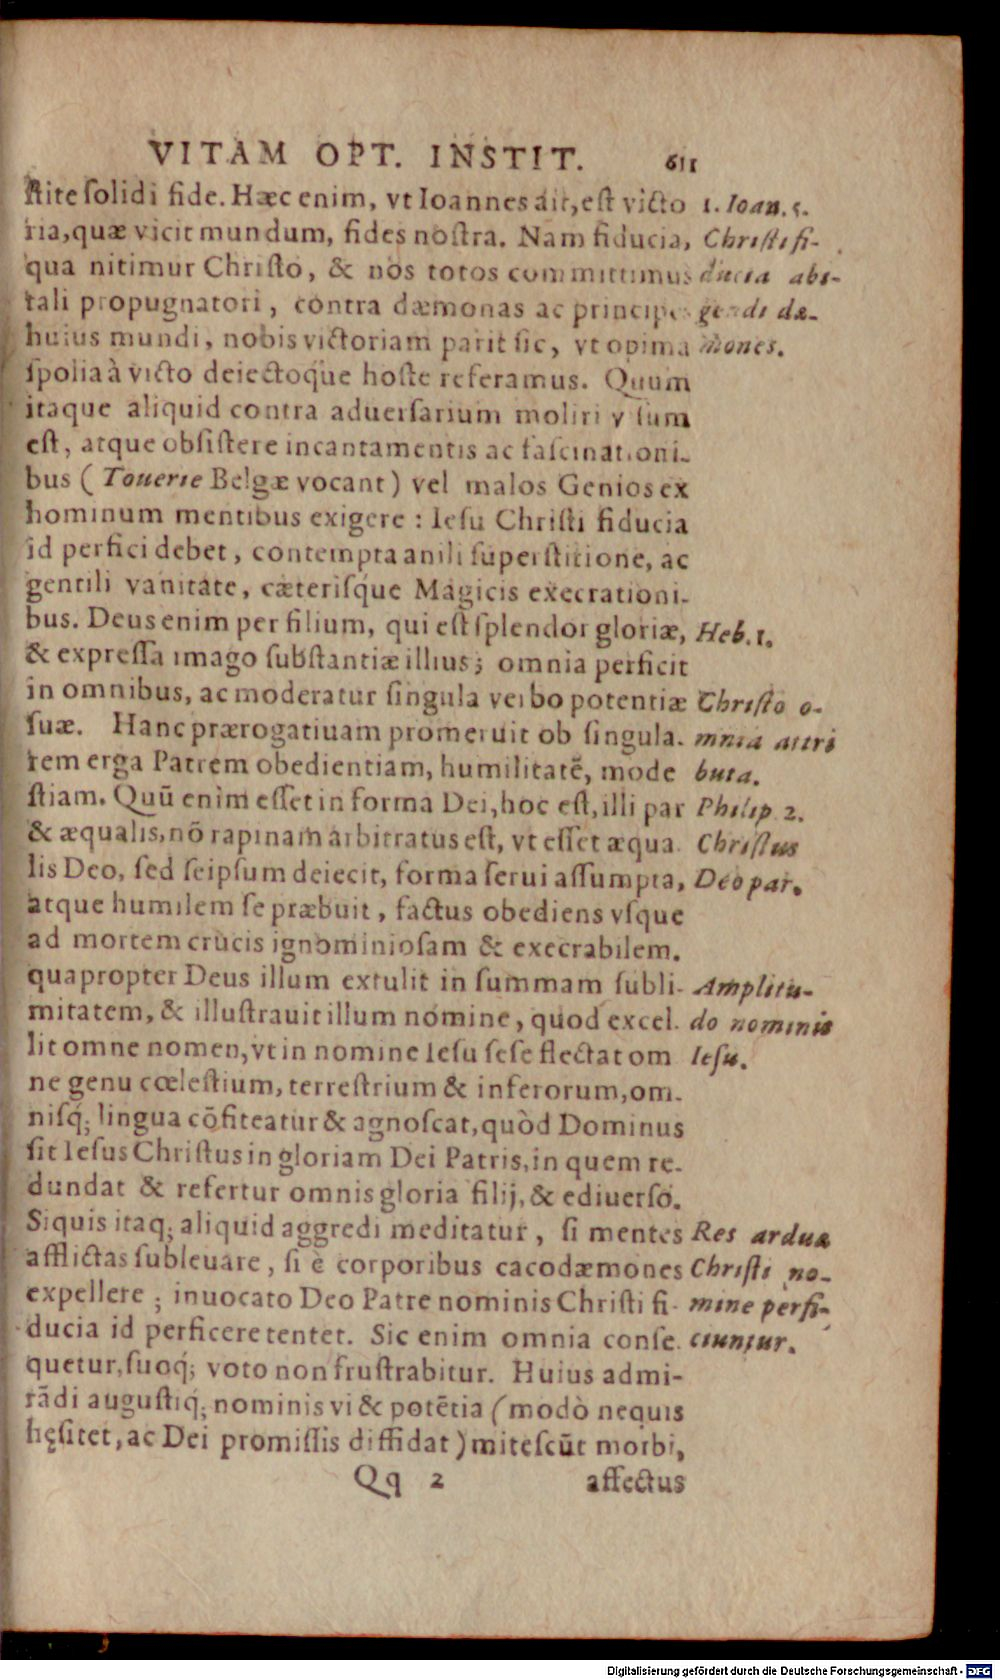 VITAM OPT. INSTIT. 611
ſtite ſolidi fide. Hæc enim, vt Ioannes ait, eſt victo 1. Ioan. 5.
ria, quæ vicit mundum, fides noſtra. Nam fiducia, Chriſti fi-
qua nitimur Chriſto, & nos totos committimus ducia abi-
tali propugnatori, contra dæmonas ac principes gendi dæ-
huius mundi, nobis victoriam parit ſic, vt opima mones.
ſpolia à victo deiectoq́ue hoſte referamus. Quum
itaque aliquid contra aduerſarium moliri v ſum
eſt, atque obſiſtere incantamentis ac faſcinationi-
bus (Touerie Belgæ vocant) vel malos Genios ex
hominum mentibus exigere : Ieſu Chriſti fiducia
id perfici debet, contempta anili ſuperſtitione, ac
gentili vanitate, cæteriſq́ue Magicis execrationi-
bus. Deus enim per filium, qui eſt ſplendor gloriæ, Heb. 1.
& expreſſa imago ſubſtantiæ illius; omnia perficit
in omnibus, ac moderatur ſingula verbo potentiæ Chriſto o-
ſuæ. Hanc prærogatiuam promeruit ob ſingula- mnia attri
rem erga Patrem obedientiam, humilitatē, mode buta.
ſtiam. Quū enim eſſet in forma Dei, hoc eſt, illi par Philip 2.
& æqualis, nō rapinam arbitratus eſt, vt eſſet æqua Chriſtus
lis Deo, ſed ſeipſum deiecit, forma ſerui aſſumpta, Deo par.
atque humilem ſe præbuit, factus obediens vſque
ad mortem crucis ignominioſam & execrabilem.
quapropter Deus illum extulit in ſummam ſubli- Amplitu-
mitatem, & illuſtrauit illum nomine, quod excel- do nominis
lit omne nomen, vt in nomine Ieſu ſeſe flectat om Ieſu.
ne genu cœleſtium, terreſtrium & inferorum, om-
niſq́; lingua cōfiteatur & agnoſcat, quòd Dominus
ſit Ieſus Chriſtus in gloriam Dei Patris, in quem re-
dundat & refertur omnis gloria filij, & ediuerſo.
Siquis itaq; aliquid aggredi meditatur, ſi mentes Res arduæ
afflictas ſubleuare, ſi è corporibus cacodæmones Chriſti no-
expellere ; inuocato Deo Patre nominis Chriſti fi- mine perfi-
ducia id perficere tentet. Sic enim omnia conſe- ciuntur.
quetur, ſuoq́; voto non fruſtrabitur. Huius admi-
rādi auguſtiq́; nominis vi & potētia (modò nequis
hęſitet, ac Dei promiſſis diffidat) miteſcūt morbi,
Qq 2 affectus
Digitalisierung gefördert durch die Deutsche Forschungsgemeinschaft - DFG